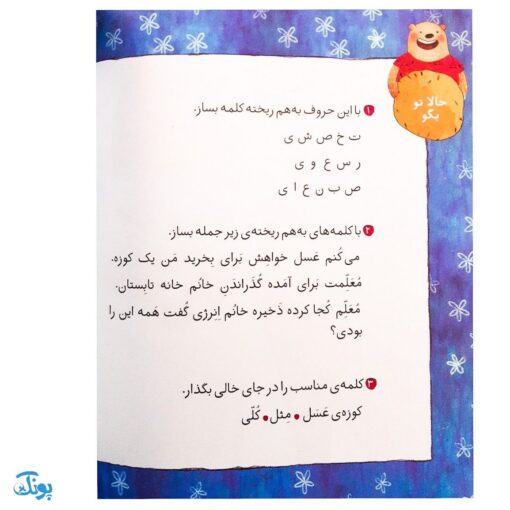 حالا تو
بگو
۱ با این حروف به‌هم ریخته کلمه بساز.
ت خ ص ش ی
ر س ع و ی
ص ب ن ع ا ی
۲ با کلمه‌های به‌هم ریخته‌ی زیر جمله بساز.
می‌کُنم عَسل خواهِش بَرای بِخرید مَن یک کوزه.
مُعَلِّمت برای آمَده گُذَراندَنِ خانُم خانه تابِستان.
مُعَلِّمِ کُجا کرده ذَخیره خانُم اِنِرژی گُفت هَمه این را
بودی؟
۳ کلمه‌ی مناسب را در جای خالی بگذار.
کوزه‌ی عَسَل • مِثل • کُلّی
پونک